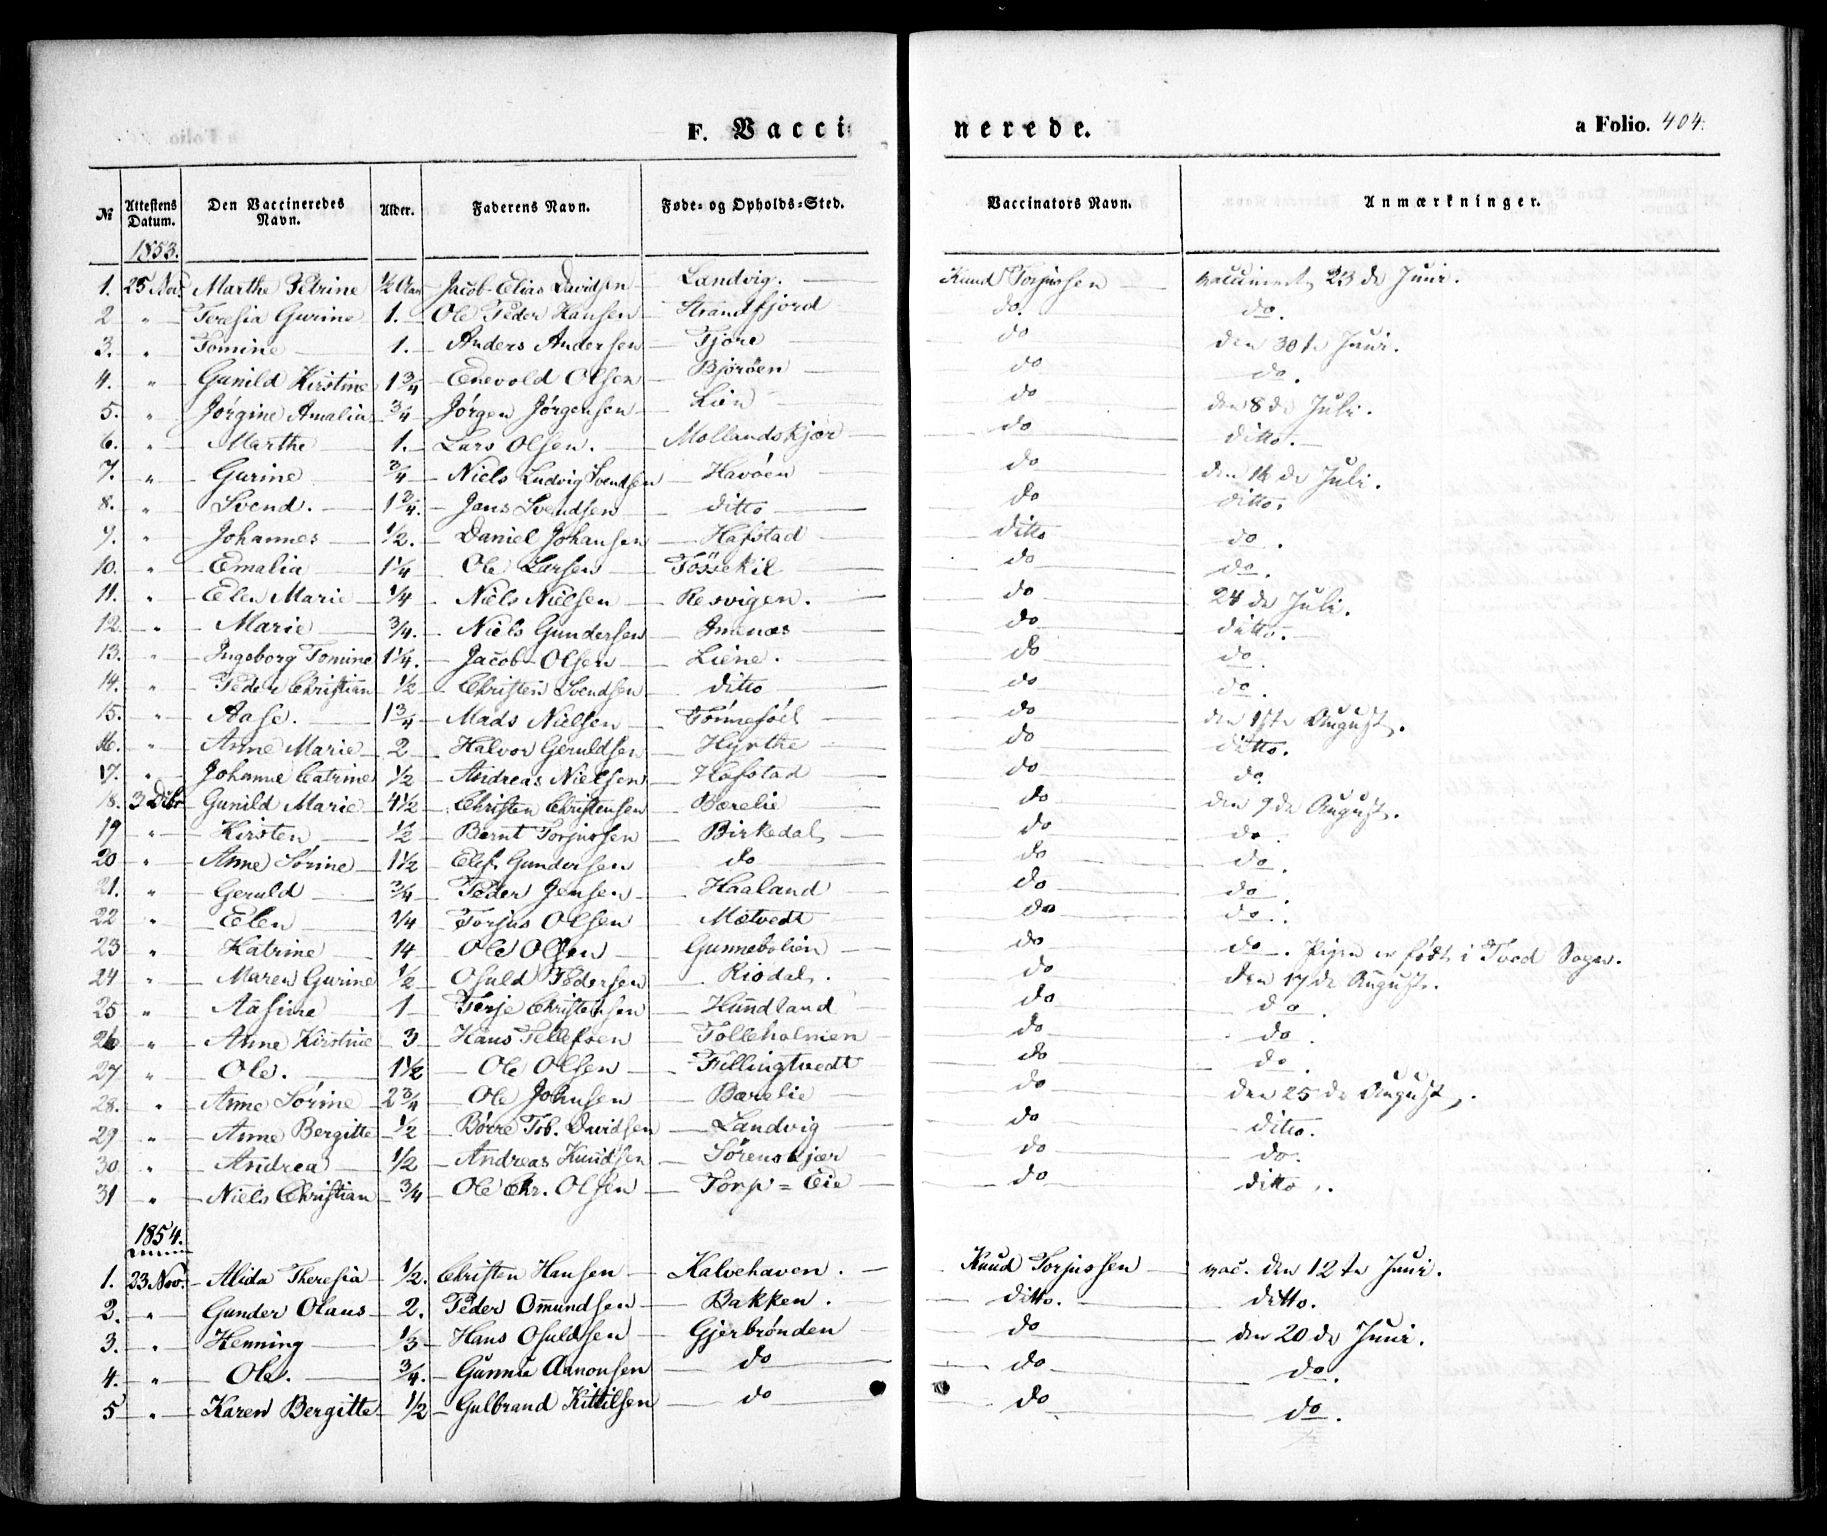 F. Vacci:nerede. a Folio. 404.
№ Attestens Datum. Den Vaccineredes Navn. Alder. Faderens Navn. Føde- og Opholds-Sted. Vaccinators Navn. Anmærkninger.
1853.
1. 25 Nov. Marthe Petrine ½ Aar Jacob Elias Davidsen Landvig. Knud Torjussen vaccineret, 23 de Juni.
2 " Teresia Gurine 1. Ole Peder Hansen Strandfjord do do.
3. " Tomine 1. Anders Andersen Fjøre do den 30te Juni.
4. " Gunild Kirstine 1¾ Enevold Olsen Bjorøen do do.
5. " Jørgine Amalia ¾ Jørgen Jørgensen Lien do den 8de Juli.
6. " Marthe 1. Lars Olsen. Mollandskjær do ditto.
7. " Gurine ¾ Niels Ludvig Svendsen Havøen do den 16 de Juli.
8. " Svend. 1¾. Jans Svendsen ditto do ditto.
9. " Johannes ½. Daniel Johansen Hafstad ditto do.
10. " Emalia 1¼ Ole Larsen Tøssekil do do.
11. " Elen Marie ¼ Niels Nielsen Resvigen. do 24 de Juli.
12. " Marie ¾. Niels Gundersen Imenæs do ditto.
13. " Ingeborg Tomine 1¼. Jacob Olsen Liene. do do.
14. " Peder Christian ½ Christen Svendsen ditto do do.
15. " Aase. 1¾ Mads Nielsen Tønnesøel do den 1ste August.
16. " Anne Marie 2 Halvor Geruldsen Hyrthe do ditto.
17. " Johanne Catrine ½ Andreas Nielsen Hafstad do do
18. 3 Dibr Gunild Marie 4½ Christen Christensen Bærelie do den 9de August.
19 " Kirsten ½ Bernt Torjussen Birkedal do do.
20 " Anne Sørine 1½ Elef. Gundersen do do do.
21. " Geruld ¾ Peder Jensen Haaland do do.
22 " Elen ¼ Torjus Olsen Mætvedt do do.
23 " Katrine 14 Ole Olsen Gunnebolien do do. Pigen er født i Tved Sogn.
24 " Maren Gurine ½ Osuld Pedersen Risdal. do den 17 de August.
25 " Aasine 1 Terje Christensen Hundland do do.
26 " Anne Kirstine 3 Hans Tellefsen Tolleholmen do do.
27 " Ole. 1½ Ole Olsen Fillingtvedt do do.
28. " Anne Sørine 2¾ Ole Johnsen Bærelie do den 25 de August.
29 " Anne Bergitte ½ Børre Tob. Davidsen Landvig do ditto.
30 " Andrea ½ Andreas Knudsen Sørenskjær do do.
31 " Niels Christian ¾ Ole Chr. Olsen Torp = Eie do ditto.
1854.
1. 23 Nov. Alida Theresia ½. Christen Hansen Kalvehaven. Knud Torjussen vac. den 12te Juni.
2. " Gunder Olaus 2. Peder Omundsen Bakken. ditto. ditto.
3. " Henning ⅓ Hans Osuldsen Gjerbrønden do den 20 de Juni.
4. " Ole. ¾. Gunne Aanonsen do do do.
5 " Karen Bergitte ½ Gulbrand Kittilsen do do do.